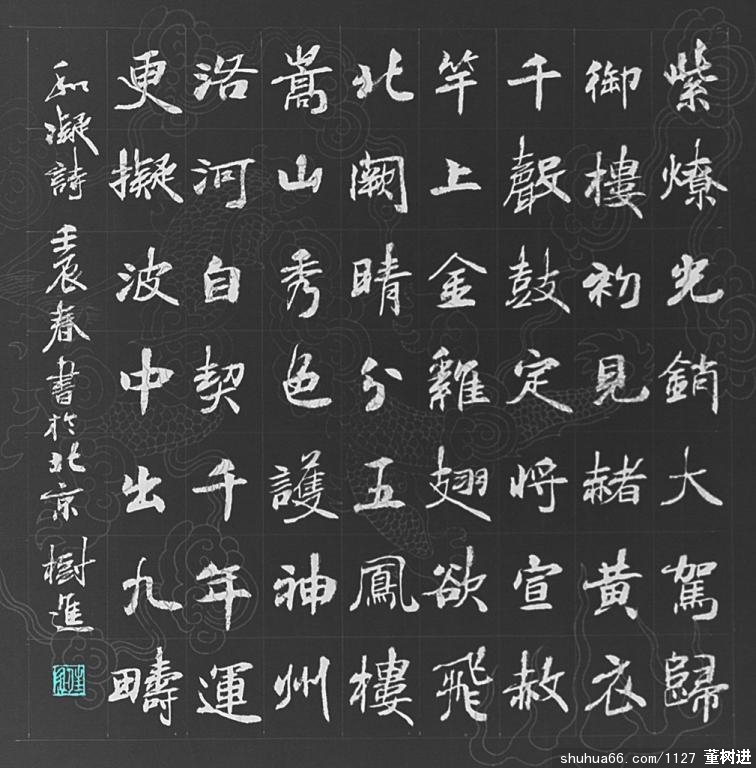 紫燎光銷大駕歸
御樓初見赭黃衣
千聲鼓定將宣赦
竿上金雞翅欲飛
北闕晴分五鳳樓
嵩山秀色護神州
洛河自契千年運
更擬波中出九疇
和凝詩 壬辰春書於北京 樹進
shuhua66.com/1127 董树进